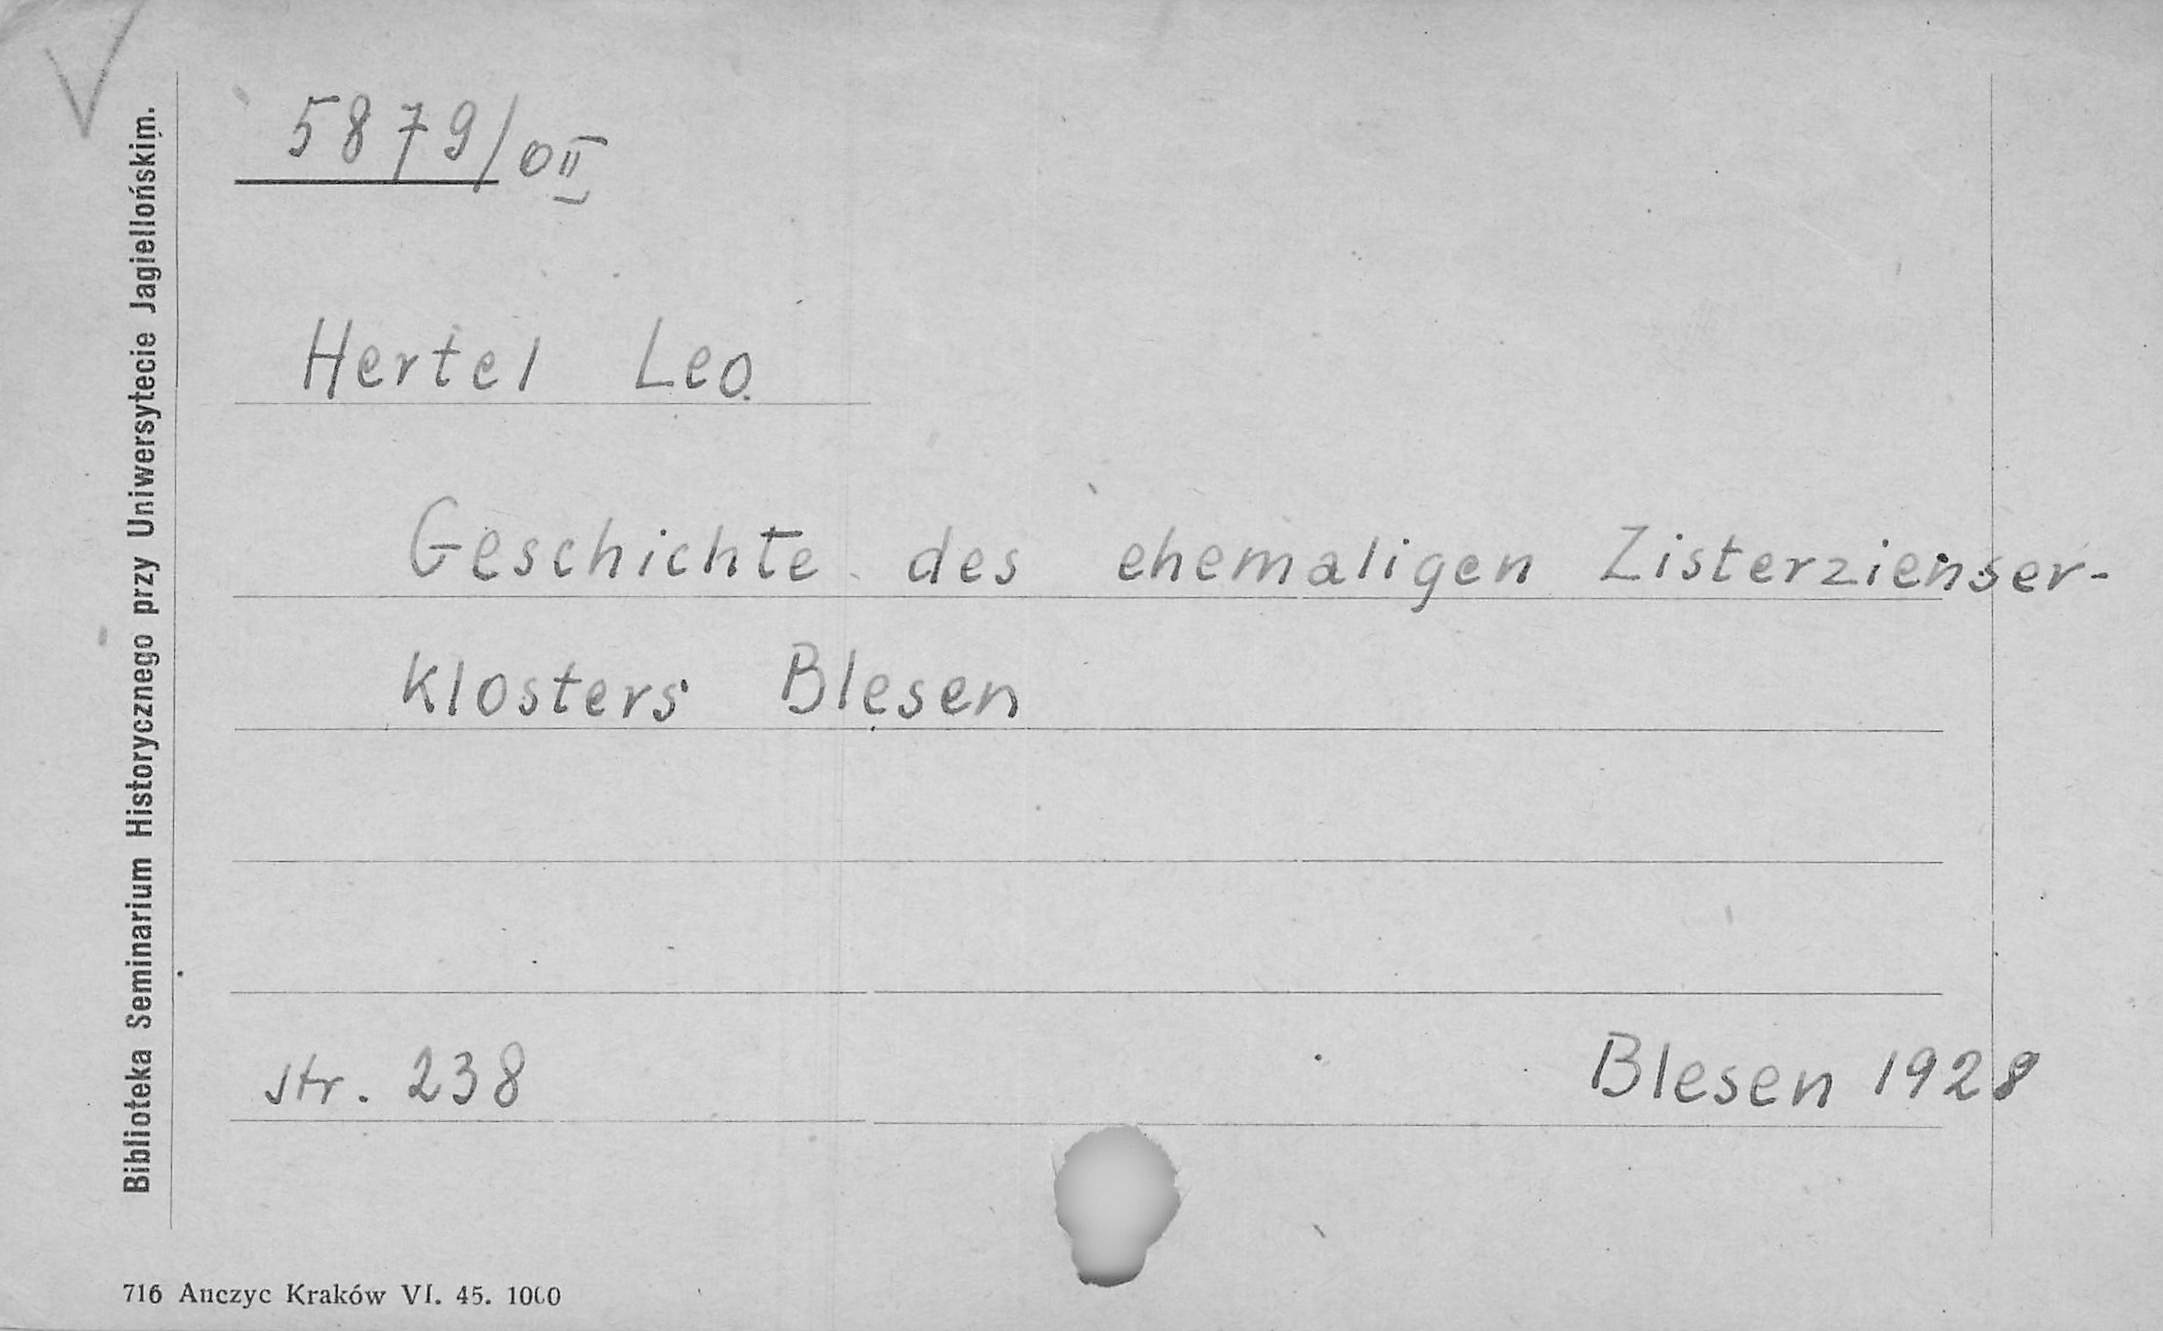 5879/0II
Hertel Leo
Geschichte des ehemaligen Zisterzienser-
klosters Blesen
str. 238
Blesen 1928
Biblioteka Seminarium Historycznego przy Uniwersytecie Jagiellońskim.
716 Anczyc Kraków VI. 45. 1000